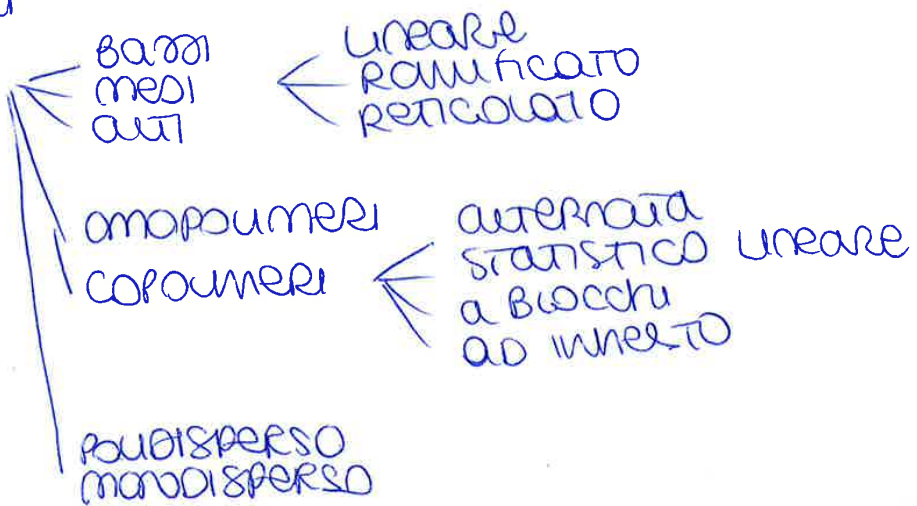 BASSI
MEDI
ALTI
LINEARE
RAMIFICATO
RETICOLATO
OMOPOLIMERI
COPOLIMERI
ALTERNATA
STATISTICO LINEARE
A BLOCCHI
AD INNESTO
POLIDISPERSO
MONODISPERSO